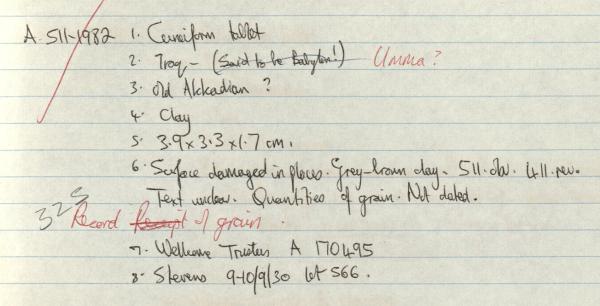 A. 511-1982 1. Cuneiform tablet
2. Iraq - (Said to be Babylon!) Umma?
3. Old Akkadian ?
4. Clay
5. 3.9 x 3.3 x 1.7 cm.
6. Surface damaged in places. Grey-brown clay. 5ll. obv. 4ll. rev.
Text unclear. Quantities of grain. Not dated.
325
Record Receipt of grain.
7. Wellcome Trustees A 170495
8. Stevens 9-10/9/30 lot 566.